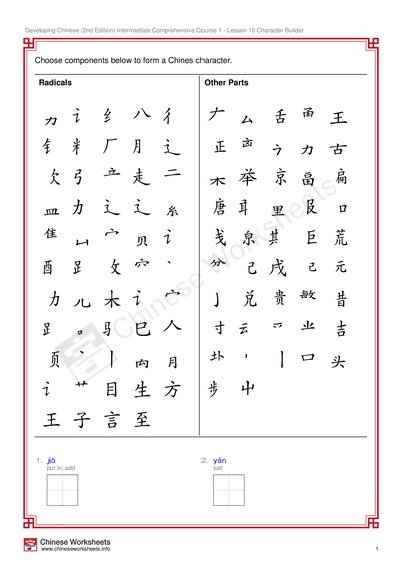 Developing Chinese (2nd Edition) Intermediate Comprehensive Course 1 - Lesson 10 Character Builder
Choose components below to form a Chines character.
Radicals
力 讠 纟 八 彳
钅 米 厂 月 辶
欠 弓 亠 走 二
皿 力 辶 辶 糸
隹 凵 冖 贝 讠
酉 𧾷 攵 穴 丶
力 儿 木 讠 宀
𧾷 马 巳 人
页 丶 丨 月
讠 艹 目 生 方
王 子 言 至
Other Parts
𠂇 厶 舌 王
正 力 古
举 京 畐 扁
唐 耳 里 口
戋 泉 其 巨 荒
分 己 戌 己 元
亅 兑 贵 敏 昔
寸 云 吉
卦 丨 口 头
步
Chinese Worksheets
1. jiā
put in; add
2. yán
salt
Chinese Worksheets
www.chineseworksheets.info
1